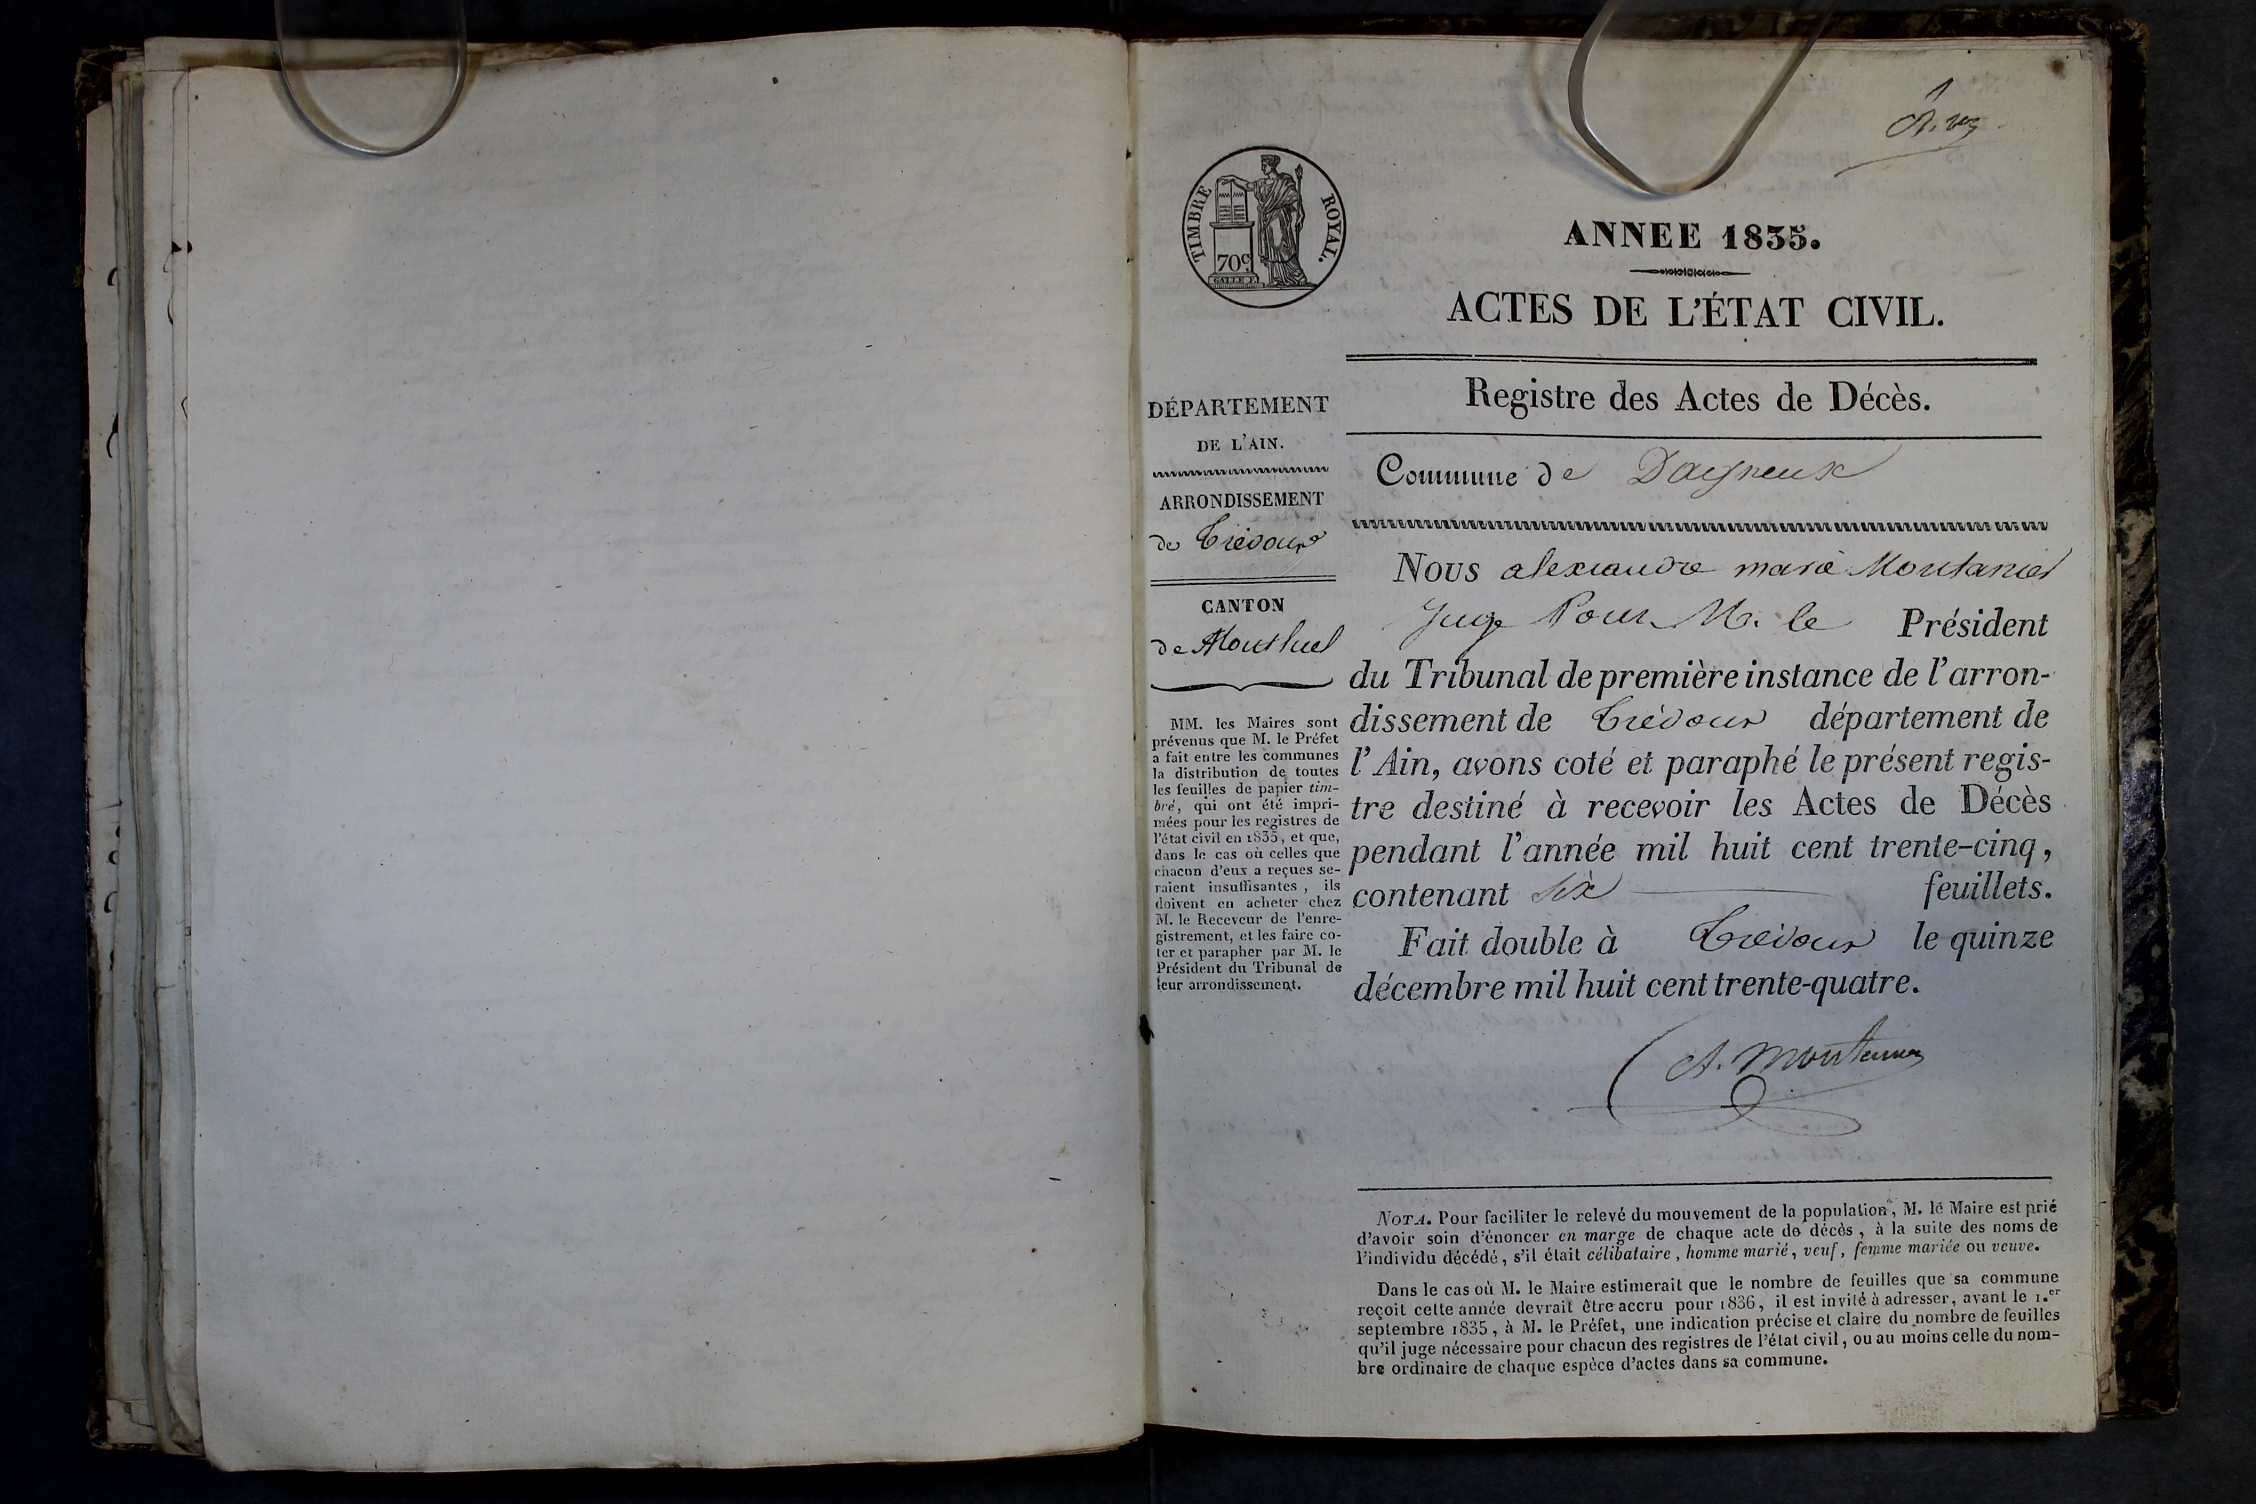 1
TIMBRE ROYAL.
70c
ANNEE 1835.
ACTES DE L'ÉTAT CIVIL.
Registre des Actes de Décès.
DÉPARTEMENT
DE L'AIN.
ARRONDISSEMENT
de Trévoux
CANTON
de Montluel
MM. les Maires sont
prévenus que M. le Préfet
a fait entre les communes
la distribution de toutes
les feuilles de papier tim-
bré, qui ont été impri-
mées pour les registres de
l'état civil en 1835, et que,
dans le cas où celles que
chacun d'eux a reçues se-
raient insuffisantes, ils
doivent en acheter chez
M. le Receveur de l'enre-
gistrement, et les faire co-
ter et parapher par M. le
Président du Tribunal de
leur arrondissement.
Commune de Dagneux
Nous alexandre marie Montanier
Juge Pour M. le Président
du Tribunal de première instance de l'arron-
dissement de Trévoux département de
l'Ain, avons coté et paraphé le présent regis-
tre destiné à recevoir les Actes de Décès
pendant l'année mil huit cent trente-cinq,
contenant six feuillets.
Fait double à Trévoux le quinze
décembre mil huit cent trente-quatre.
A. Montanier
NOTA. Pour faciliter le relevé du mouvement de la population, M. le Maire est prié
d'avoir soin d'énoncer en marge de chaque acte de décès, à la suite des noms de
l'individu décédé, s'il était célibataire, homme marié, veuf, femme mariée ou veuve.
Dans le cas où M. le Maire estimerait que le nombre de feuilles que sa commune
reçoit cette année devrait être accru pour 1836, il est invité à adresser, avant le 1.er
septembre 1835, à M. le Préfet, une indication précise et claire du nombre de feuilles
qu'il juge nécessaire pour chacun des registres de l'état civil, ou au moins celle du nom-
bre ordinaire de chaque espèce d'actes dans sa commune.